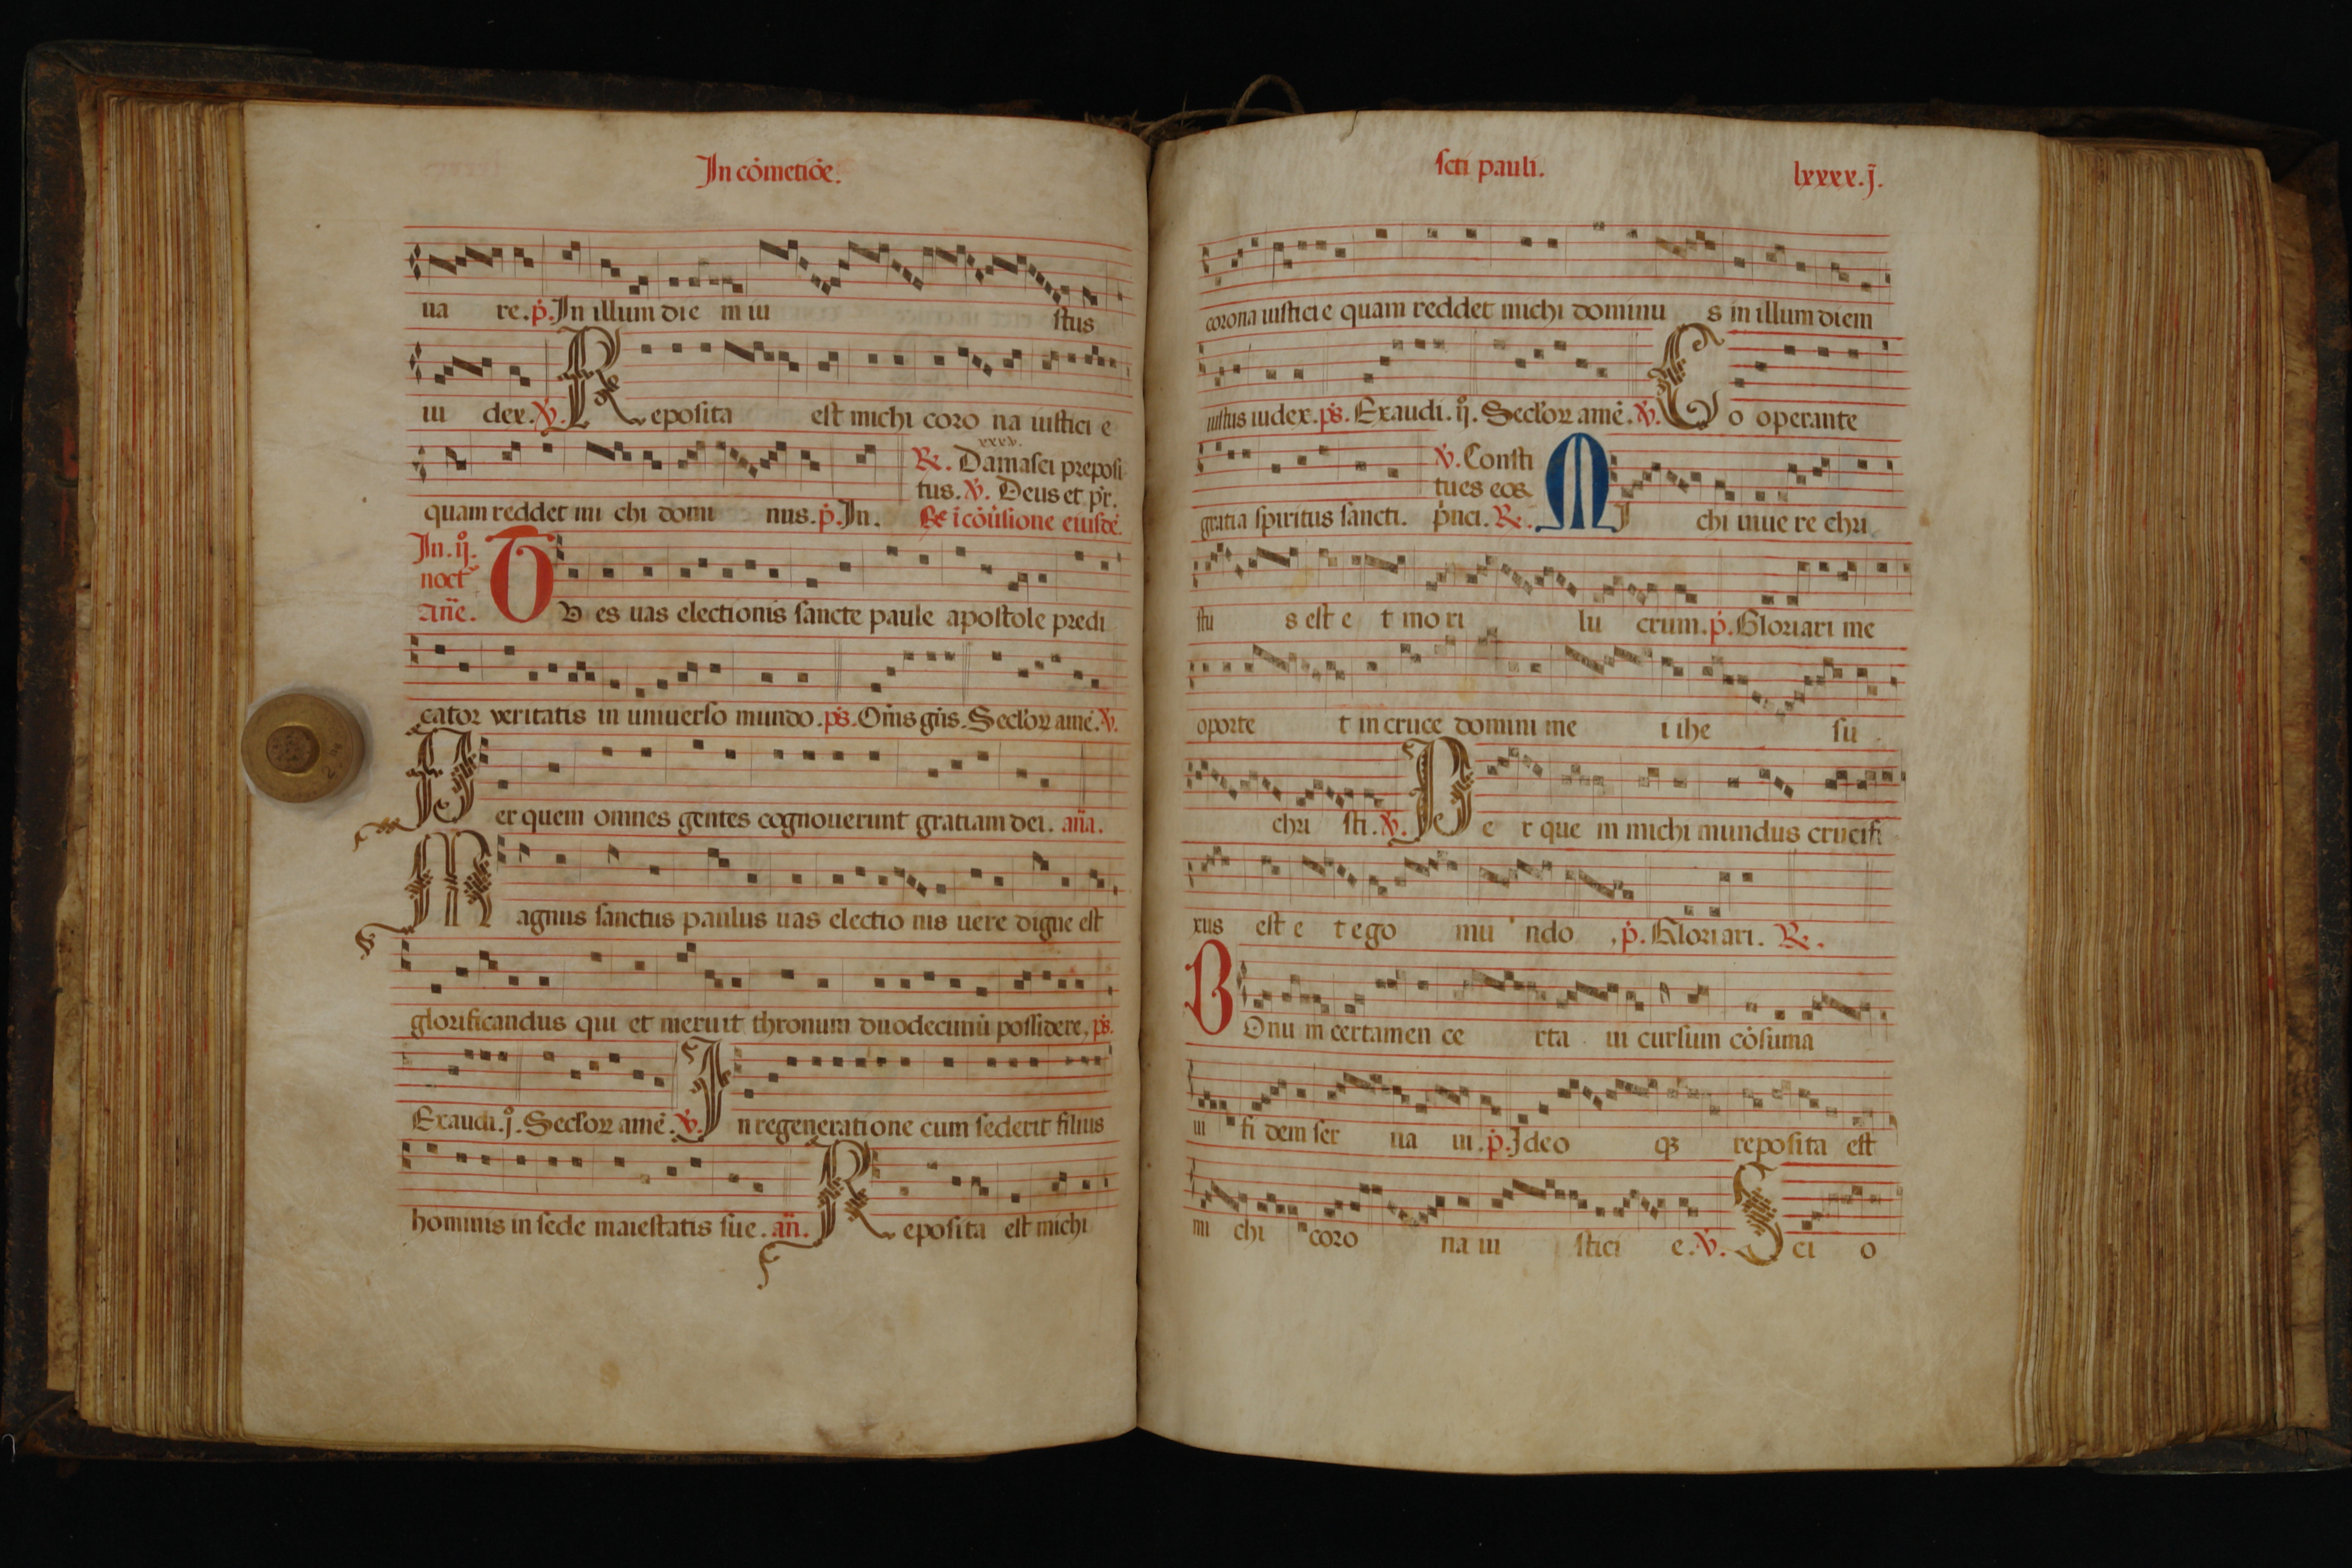 In cȯmetiȯe.
ua re. ṗ. In illum die m iu stus
iu dex. ℣. Reposita est michi coro na iustici e
xxxv.
℟. Damasci preposi
tus. ℣. Deus et pr̄.
quam reddet mi chi domi nus. ṗ. In. ℟ ī cōu̇sione eiusdē
In. ij̊.
noct᷑
an̄e. Tv es uas electionis sancte paule apostole predi
cator veritatis in uniuerso mundo. ps̄. Om̄s gn̄s. Secl'oꝝ amē. ℣.
Per quem omnes gentes cognouerunt gratiam dei. an̄a.
Magnus sanctus paulus uas electio nis uere digne est
glorificandus qui et meruit thronum duodecimū possidere. ps̄.
Exaudi. j̊. Secl'oꝝ amē. ℣. In regeneratione cum sederit filius
hominis in sede maiestatis sue. an̄. Reposita est michi
sc̄ti pauli. lxxxx. j̄.
corona iusticie quam reddet michi dominu s in illum diem
iustus iudex. ps̄. Exaudi. ij̊. Secl'oꝝ amē. ℣. Co operante
℣. Consti
tues eos
gratia spiritus sancti. p̄nci. ℟. MI chi uiue re chri
stu s est e t mo ri lu crum. ṗ. Gloriari me
oporte t in cruce domini me i ihe su
chri sti. ℣. Pe r que m michi mundus crucifi
xus est e t ego mu ndo. ṗ. Gloriari. ℟.
BOnu m certamen ce rta ui cursum cōsuma
ui fi dem ser ua ui. ṗ. Ideo qꝫ reposita est
mi chi coro na iu stici e. ℣. Sci o